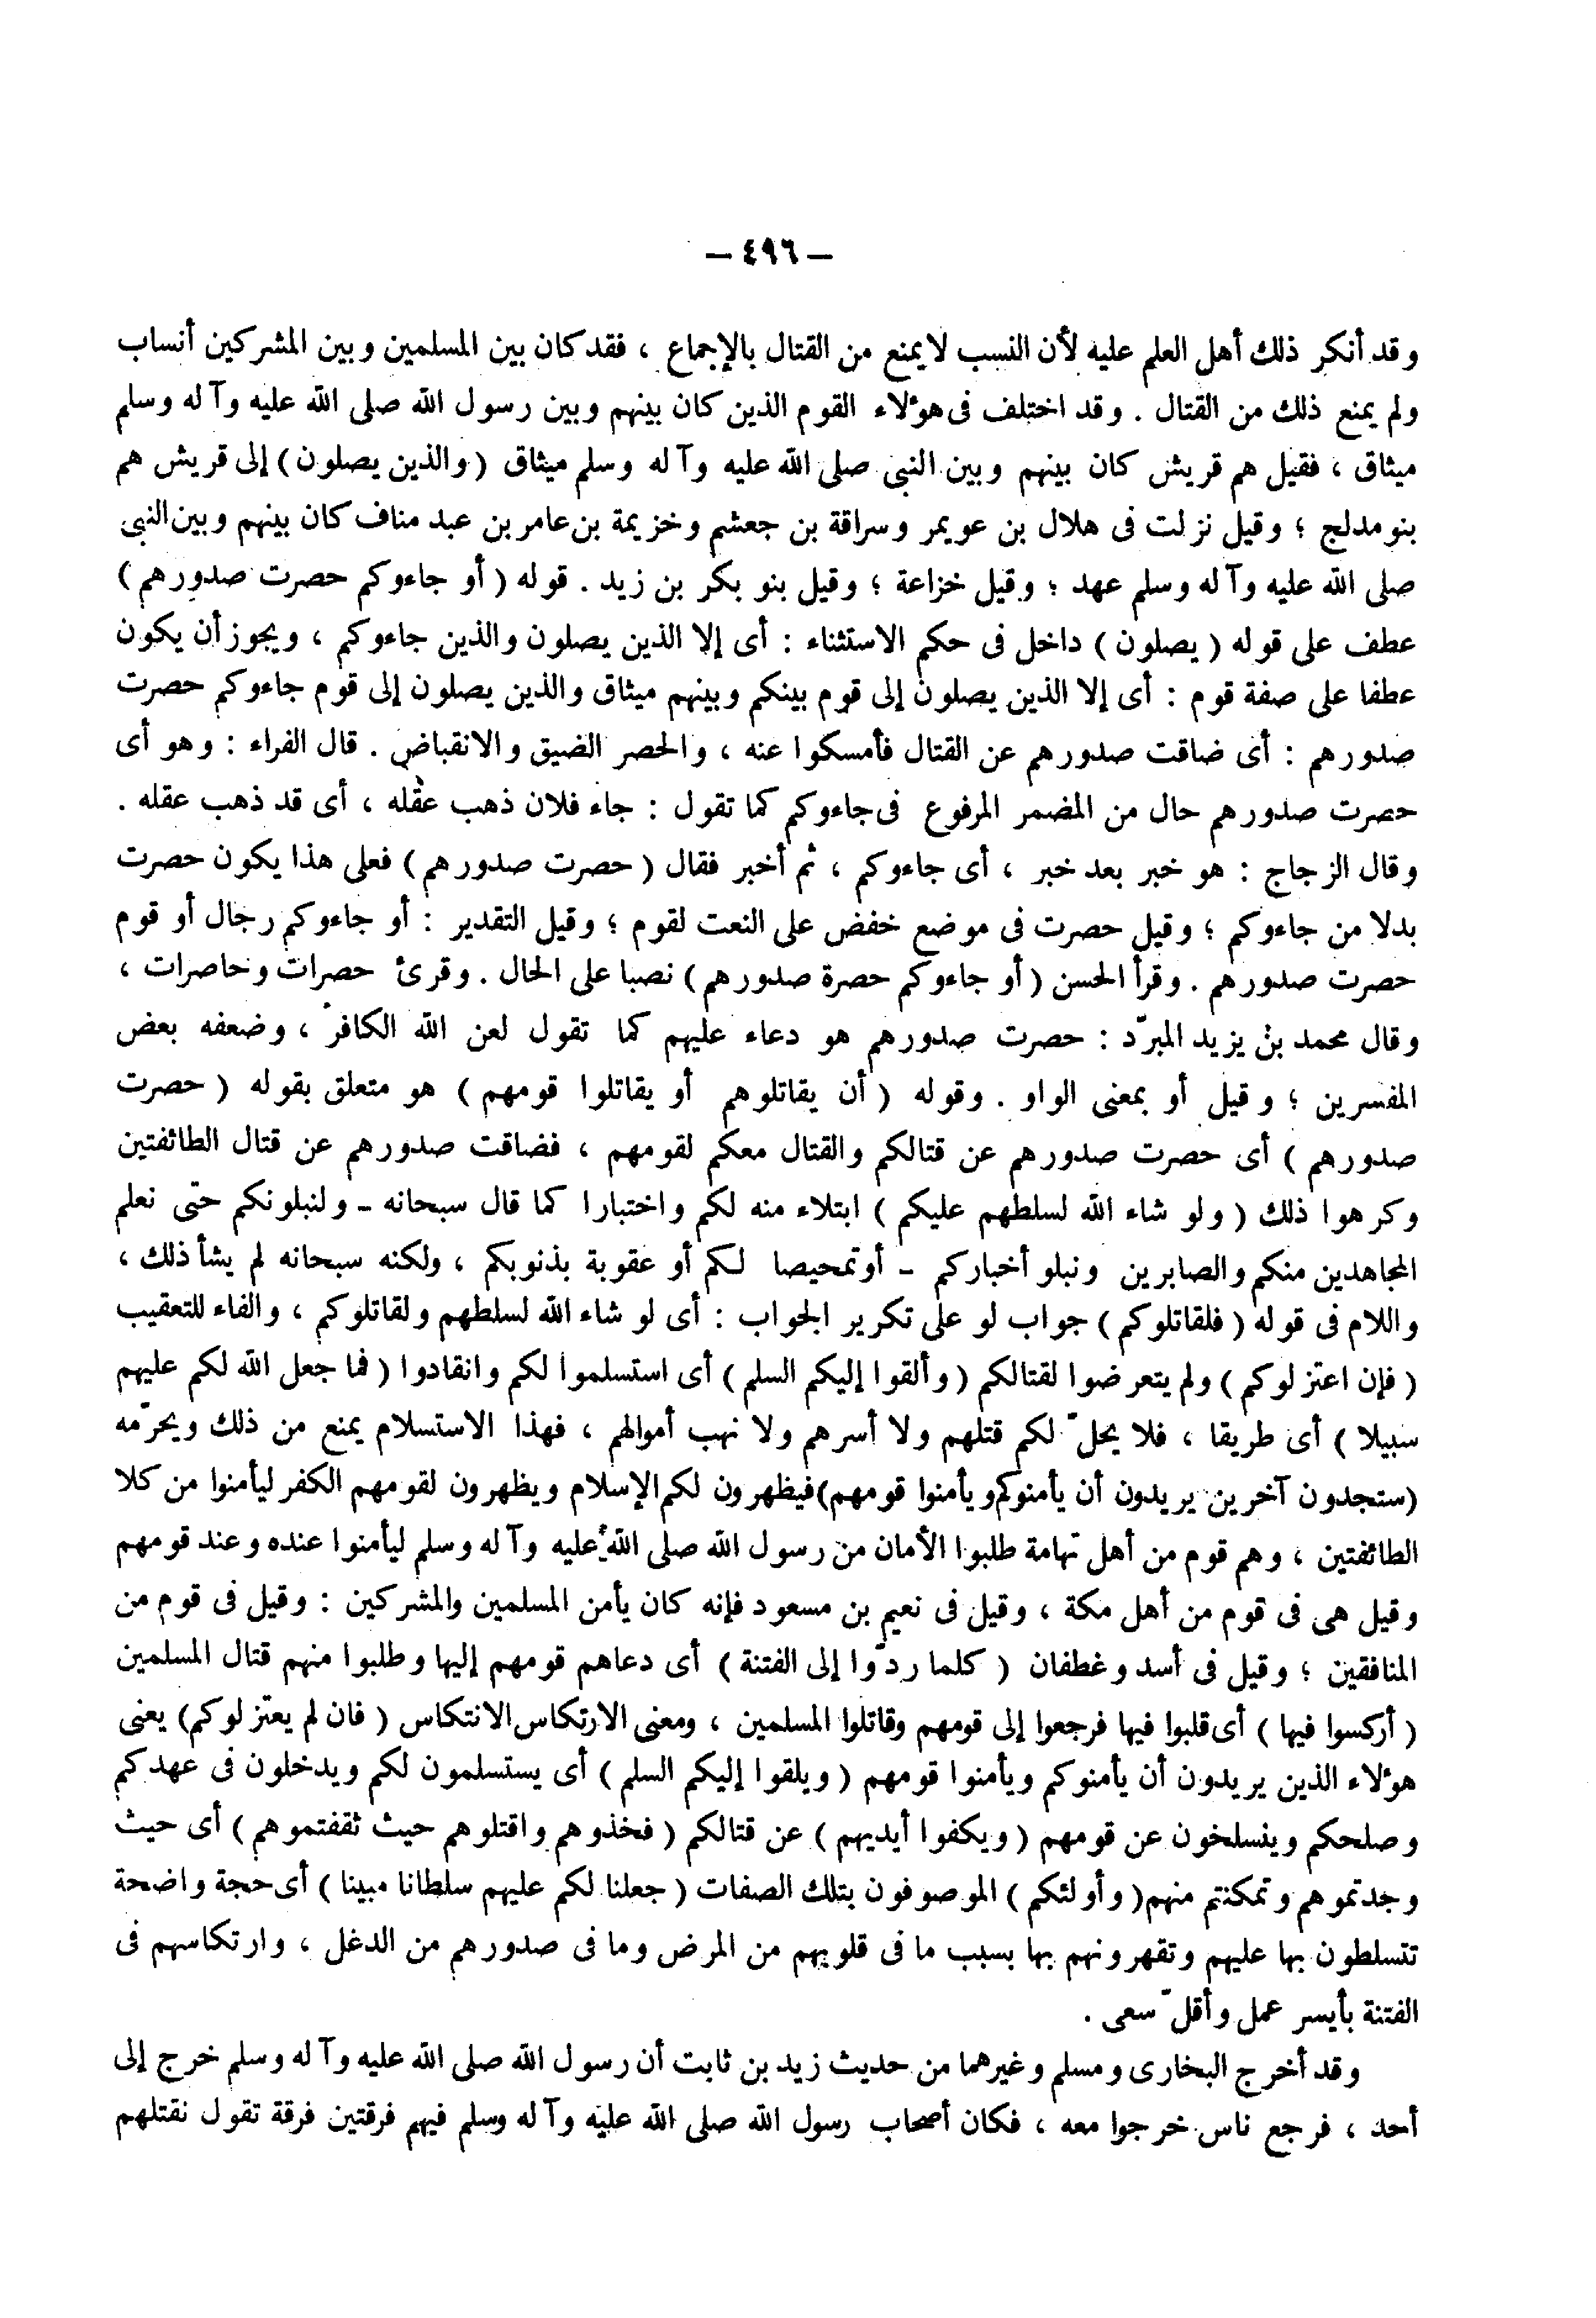 – ٤٩٦ –
وقد أنكر ذلك أهل العلم عليه لأن النسب لا يمنع من القتال بالإجماع ، فقد كان بين المسلمين وبين المشركين أنساب
ولم يمنع ذلك من القتال . وقد اختلف فى هؤلاء القوم الذين كان بينهم وبين رسول الله صلى الله عليه وآله وسلم
ميثاق ، فقيل هم قريش كان بينهم وبين النبى صلى الله عليه وآله وسلم ميثاق ( والذين يصلون ) إلى قريش هم
بنو مدلج ؛ وقيل نزلت فى هلال بن عويمر وسراقة بن جعشم وخزيمة بن عامر بن عبد مناف كان بينهم وبين النبى
صلى الله عليه وآله وسلم عهد ؛ وقيل خزاعة ؛ وقيل بنو بكر بن زيد . قوله ( أو جاءوكم حصرت صدورهم )
عطف على قوله ( يصلون ) داخل فى حكم الاستثناء : أى إلا الذين يصلون والذين جاءوكم ، ويجوز أن يكون
عطفا على صفة قوم : أى إلا الذين يصلون إلى قوم بينكم وبينهم ميثاق والذين يصلون إلى قوم جاءوكم حصرت
صدورهم : أى ضاقت صدورهم عن القتال فأمسكوا عنه ، والحصر الضيق والانقباض . قال الفراء : وهو أى
حصرت صدورهم حال من المضمر المرفوع فى جاءوكم كما تقول : جاء فلان ذهب عقله ، أى قد ذهب عقله .
وقال الزجاج : هو خبر بعد خبر ، أى جاءوكم ، ثم أخبر فقال ( حصرت صدورهم ) فعلى هذا يكون حصرت
بدلا من جاءوكم ؛ وقيل حصرت فى موضع خفض على النعت لقوم ؛ وقيل التقدير : أو جاءوكم رجال أو قوم
حصرت صدورهم . وقرأ الحسن ( أو جاءوكم حصرة صدورهم ) نصبا على الحال . وقرئ حصرات وحاصرات ،
وقال محمد بن يزيد المبرّد : حصرت صدورهم هو دعاء عليهم كما تقول لعن الله الكافر ، وضعفه بعض
المفسرين ؛ وقيل أو بمعنى الواو . وقوله ( أن يقاتلوهم أو يقاتلوا قومهم ) هو متعلق بقوله ( حصرت
صدورهم ) أى حصرت صدورهم عن قتالكم والقتال معكم لقومهم ، فضاقت صدورهم عن قتال الطائفتين
وكرهوا ذلك ( ولو شاء الله لسلطهم عليكم ) ابتلاء منه لكم واختبارا كما قال سبحانه - ولنبلونكم حتى نعلم
المجاهدين منكم والصابرين ونبلو أخباركم - أو تمحيصا لكم أو عقوبة بذنوبكم ، ولكنه سبحانه لم يشأ ذلك ،
واللام فى قوله ( فلقاتلوكم ) جواب لو على تكرير الجواب : أى لو شاء الله لسلطهم ولقاتلوكم ، والفاء للتعقيب
( فإن اعتزلوكم ) ولم يتعرضوا لقتالكم ( وألقوا إليكم السلم ) أى استسلموا لكم وانقادوا ( فما جعل الله لكم عليهم
سبيلا ) أى طريقا ، فلا يحلّ لكم قتلهم ولا أسرهم ولا نهب أموالهم ، فهذا الاستسلام يمنع من ذلك ويحرّمه
( ستجدون آخرين يريدون أن يأمنوكم ويأمنوا قومهم ) فيظهرون لكم الإسلام ويظهرون لقومهم الكفر ليأمنوا من كلا
الطائفتين ، وهم قوم من أهل تهامة طلبوا الأمان من رسول الله صلى الله عليه وآله وسلم ليأمنوا عنده وعند قومهم
وقيل هى فى قوم من أهل مكة ، وقيل فى نعيم بن مسعود فإنه كان يأمن المسلمين والمشركين : وقيل فى قوم من
المنافقين ؛ وقيل فى أسد وغطفان ( كلما ردّوا إلى الفتنة ) أى دعاهم قومهم إليها وطلبوا منهم قتال المسلمين
( أركسوا فيها ) أى قلبوا فيها فرجعوا إلى قومهم وقاتلوا المسلمين ، ومعنى الارتكاس الانتكاس ( فان لم يعتزلوكم ) يعنى
هؤلاء الذين يريدون أن يأمنوكم ويأمنوا قومهم ( ويلقوا إليكم السلم ) أى يستسلمون لكم ويدخلون فى عهدكم
وصلحكم وينسلخون عن قومهم ( ويكفوا أيديهم ) عن قتالكم ( فخذوهم واقتلوهم حيث ثقفتموهم ) أى حيث
وجدتموهم وتمكنتم منهم ( وأولئكم ) الموصوفون بتلك الصفات ( جعلنا لكم عليهم سلطانا مبينا ) أى حجة واضحة
تتسلطون بها عليهم وتقهرونهم بها بسبب ما فى قلوبهم من المرض وما فى صدورهم من الدغل ، وارتكاسهم فى
الفتنة بأيسر عمل وأقلّ سعى .
وقد أخرج البخارى ومسلم وغيرهما من حديث زيد بن ثابت أن رسول الله صلى الله عليه وآله وسلم خرج إلى
أحد ، فرجع ناس خرجوا معه ، فكان أصحاب رسول الله صلى الله عليه وآله وسلم فيهم فرقتين فرقة تقول نقتلهم